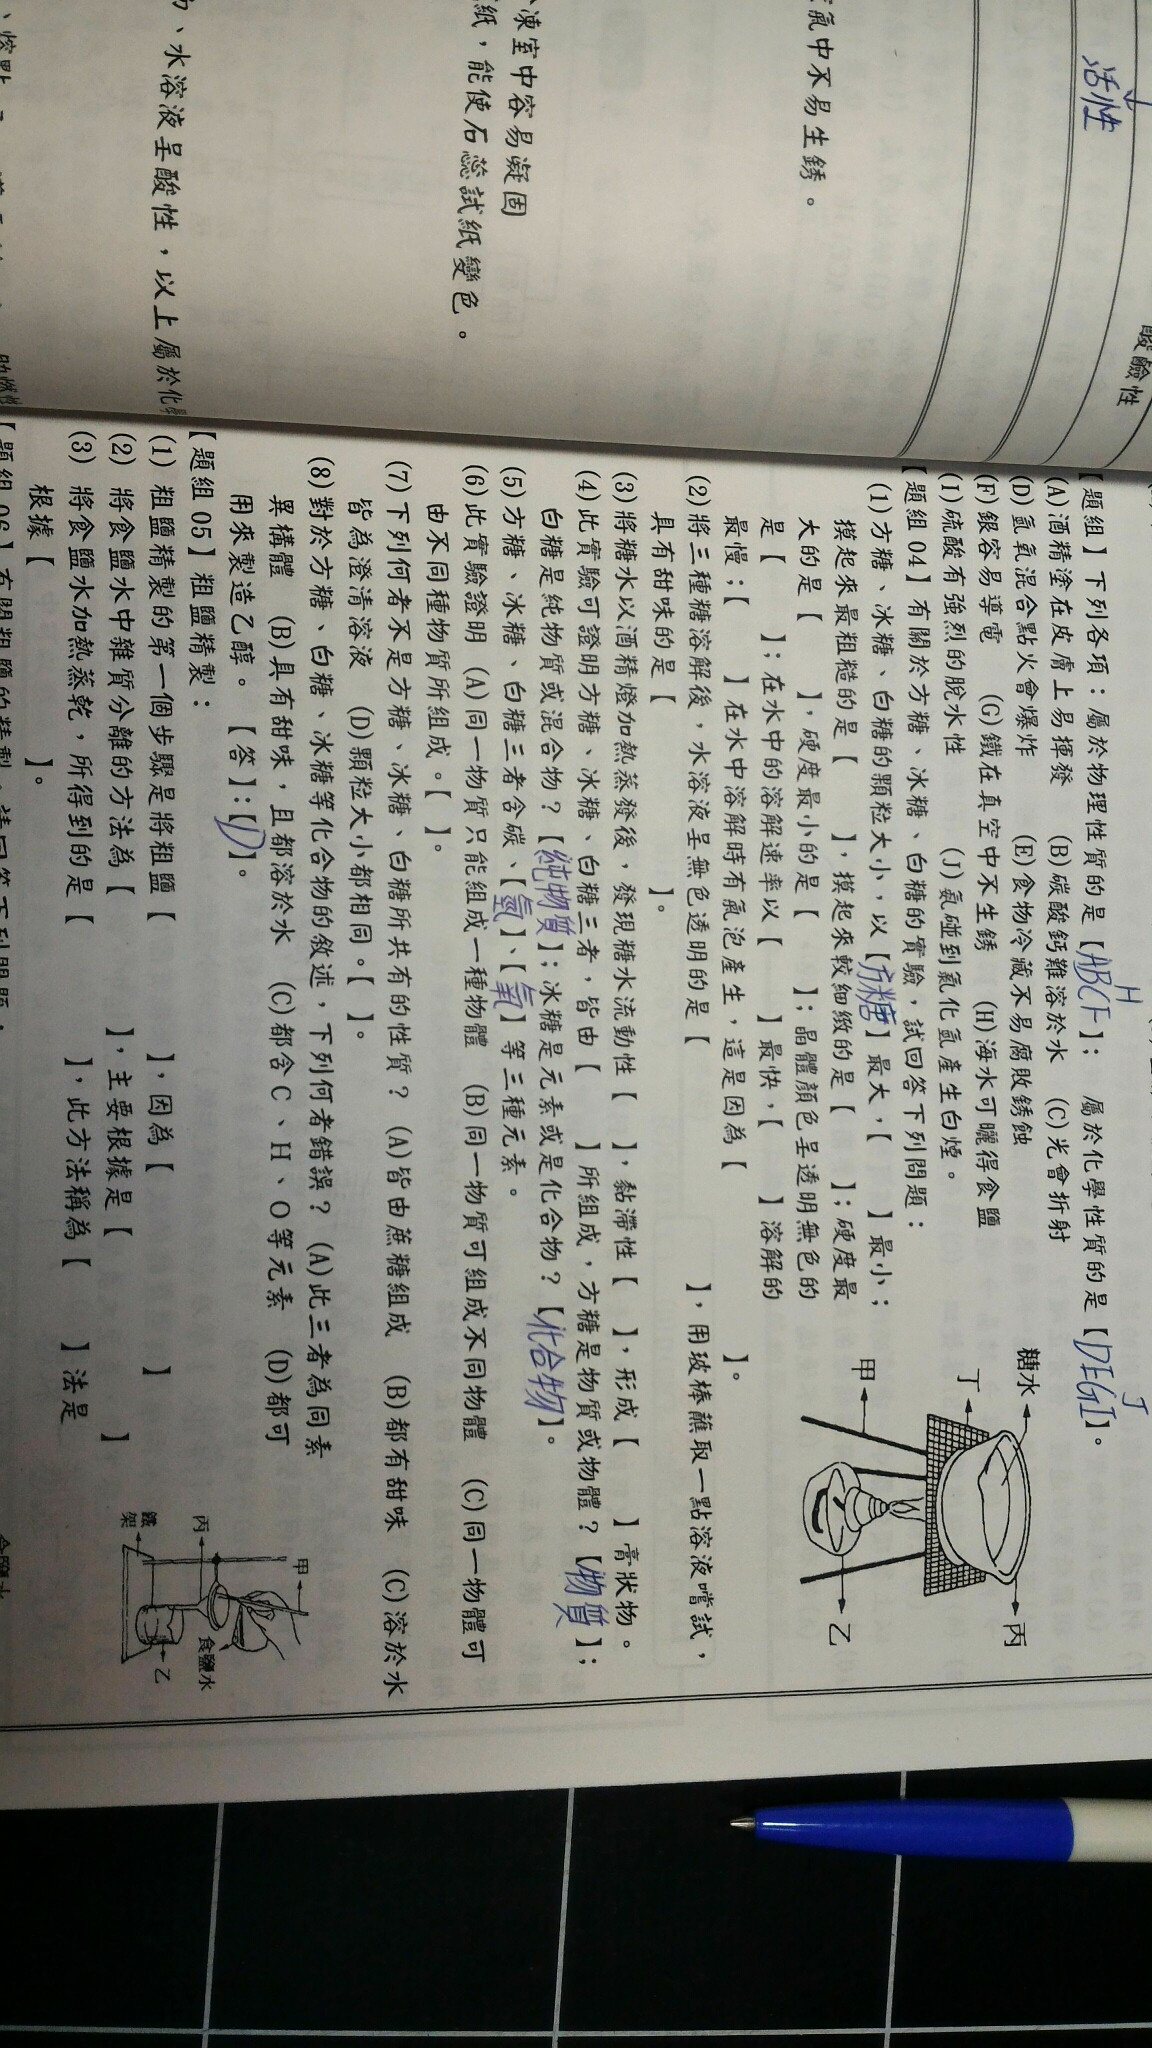 活性
酸鹼性
氣中不易生銹。
凍室中容易凝固
紙，能使石蕊試紙變色。
、水溶液呈酸性，以上屬於化學
【題組】下列各項：屬於物理性質的是【ABCFH】； 屬於化學性質的是【DEGIJ】。
(A)酒精塗在皮膚上易揮發 (B)碳酸鈣難溶於水 (C)光會折射
(D)氫氧混合點火會爆炸 (E)食物冷藏不易腐敗銹蝕
(F)銀容易導電 (G)鐵在真空中不生銹 (H)海水可曬得食鹽
(I)硫酸有強烈的脫水性 (J)氨碰到氯化氫產生白煙。
【題組 04】有關於方糖、冰糖、白糖的實驗，試回答下列問題：
(1)方糖、冰糖、白糖的顆粒大小，以【方糖】最大，【 】最小；
摸起來最粗糙的是【 】，摸起來較細緻的是【 】；硬度最
大的是【 】，硬度最小的是【 】；晶體顏色呈透明無色的
是【 】；在水中的溶解速率以【 】最快，【 】溶解的
最慢；【 】在水中溶解時有氣泡產生，這是因為【 】。
(2)將三種糖溶解後，水溶液呈無色透明的是【 】，用玻棒蘸取一點溶液嚐試，
具有甜味的是【 】。
(3)將糖水以酒精燈加熱蒸發後，發現糖水流動性【 】，黏滯性【 】，形成【 】膏狀物。
(4)此實驗可證明方糖、冰糖、白糖三者，皆由【 】所組成，方糖是物質或物體？【物質】；
白糖是純物質或混合物？【純物質】；冰糖是元素或是化合物？【化合物】。
(5)方糖、冰糖、白糖三者含碳、【氫】、【氧】等三種元素。
(6)此實驗證明 (A)同一物質只能組成一種物體 (B)同一物質可組成不同物體 (C)同一物體可
由不同種物質所組成。【 】。
(7)下列何者不是方糖、冰糖、白糖所共有的性質？ (A)皆由蔗糖組成 (B)都有甜味 (C)溶於水
皆為澄清溶液 (D)顆粒大小都相同。【 】。
(8)對於方糖、白糖、冰糖等化合物的敘述，下列何者錯誤？ (A)此三者為同素
異構體 (B)具有甜味，且都溶於水 (C)都含C、H、O等元素 (D)都可
用來製造乙醇。 【答】：【D】。
糖水
丁
甲
丙
乙
【題組 05】粗鹽精製：
(1) 粗鹽精製的第一個步驟是將粗鹽【 】，因為【 】
(2) 將食鹽水中雜質分離的方法為【 】，主要根據是【 】
(3) 將食鹽水加熱蒸乾，所得到的是【 】，此方法稱為【 】法是
根據【 】。
甲
丙
鐵架
食鹽水
乙
【題組 06】有關粗鹽的精製，請回答下列問題：